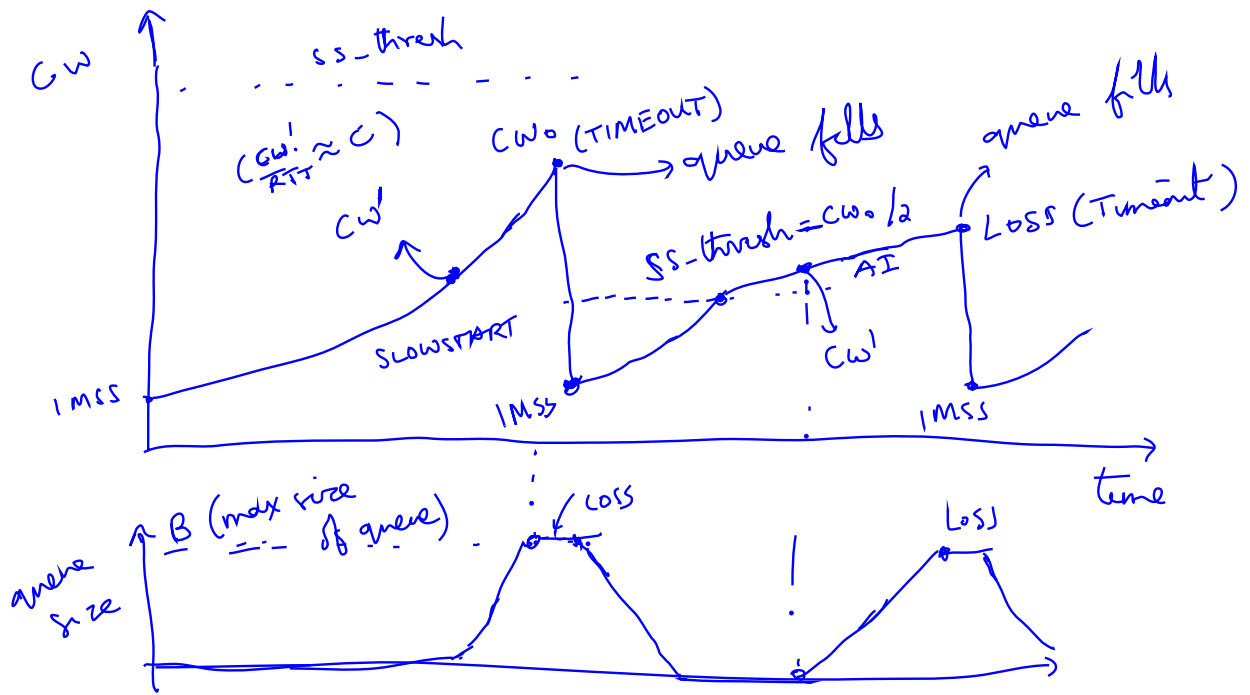 CW
ss_thresh
(CW'/RTT ≈ C)
CW₀ (TIMEOUT)
queue fills
queue fills
CW'
ss_thresh = CW₀/2
LOSS (Timeout)
AI
SLOWSTART
CW'
1MSS
1MSS
1MSS
time
B (max size
of queue)
LOSS
LOSS
queue
size